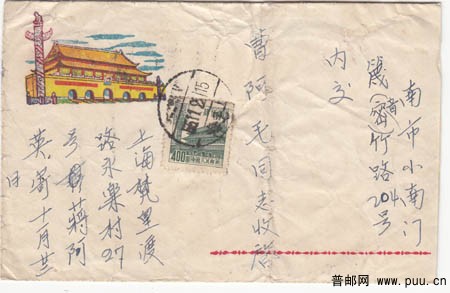 南市小南门
篾(音密)竹路
204号
内交
曹阿毛同志收启
上海梵皇渡
路永乐村27
号 蒋阿
英 寄 十月廿
日
400
普邮网 www.puu.cn